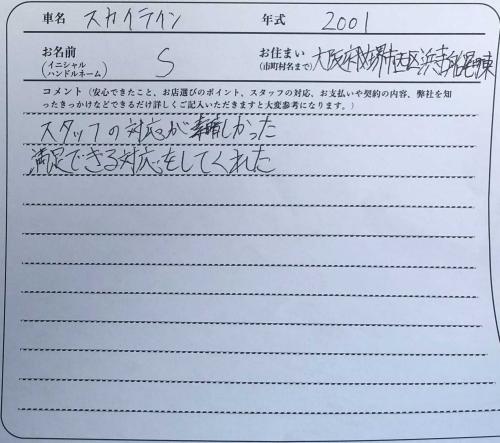 車名 スカイライン 年式 2001
お名前 (イニシャル ハンドルネーム) S お住まい (市町村名まで) 大阪府堺市西区浜寺船尾町東
コメント(安心できたこと、お店選びのポイント、スタッフの対応、お支払いや契約の内容、弊社を知
ったきっかけなどできるだけ詳しくご記入いただきますと大変参考になります。)
スタッフの対応が素晴しかった
満足できる対応をしてくれた